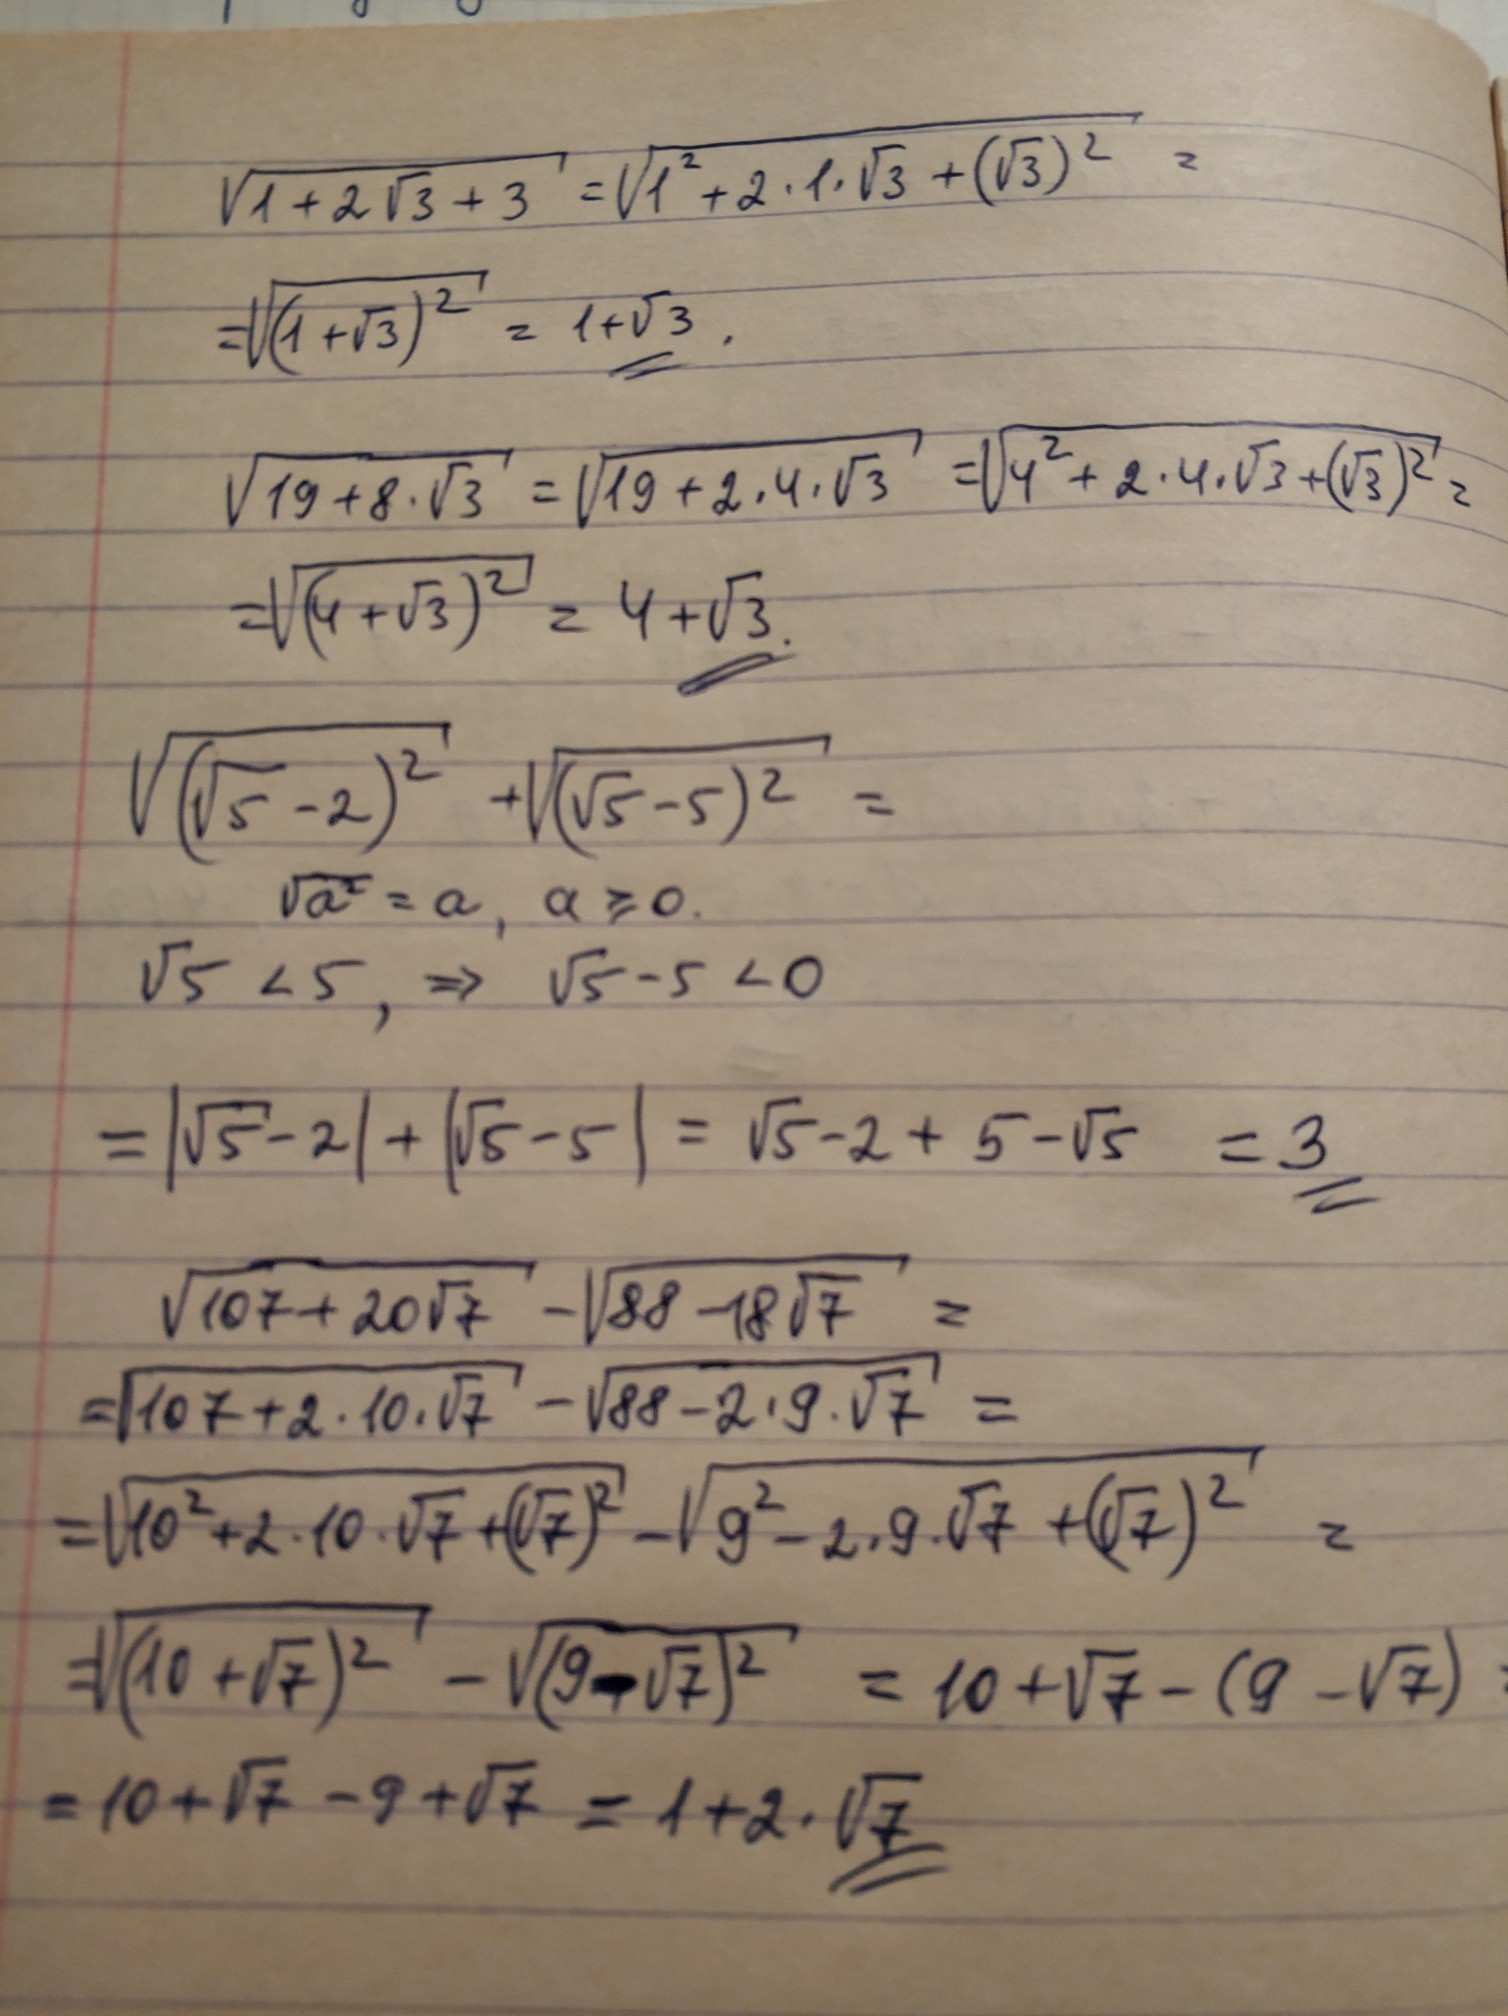 √(1 + 2√3 + 3) = √(1² + 2·1·√3 + (√3)²) =
= √((1 + √3)²) = 1 + √3.
√(19 + 8·√3) = √(19 + 2·4·√3) = √(4² + 2·4·√3 + (√3)²) =
= √((4 + √3)²) = 4 + √3.
√((√5 - 2)²) + √((√5 - 5)²) =
√a² = a, a ⩾ 0.
√5 < 5, ⇒ √5 - 5 < 0
= |√5 - 2| + |√5 - 5| = √5 - 2 + 5 - √5 = 3
√(107 + 20√7) - √(88 - 18√7) =
= √(107 + 2·10·√7) - √(88 - 2·9·√7) =
= √(10² + 2·10·√7 + (√7)²) - √(9² - 2·9·√7 + (√7)²) =
= √((10 + √7)²) - √((9 - √7)²) = 10 + √7 - (9 - √7) =
= 10 + √7 - 9 + √7 = 1 + 2·√7